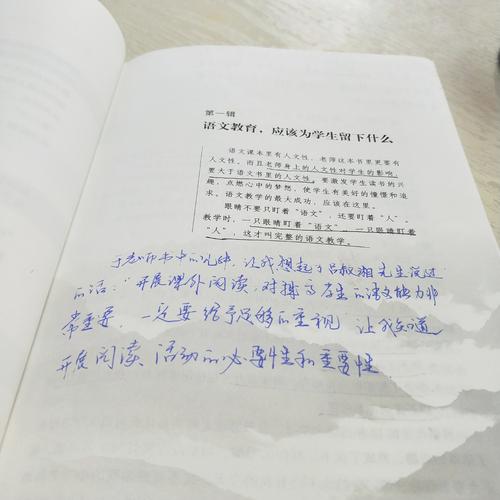 第一辑
语文教育，应该为学生留下什么
语文课本里有人文性，老师这本书里更要有
人文性。而且老师身上的人文性对学生的影响，
要大于语文书里的人文性。要激发学生读书的兴
趣，点燃心中的梦想，使学生有美好的憧憬和追
求。语文教学的最大成功，应该在这里。
眼睛不要只盯着“语文”，还要盯着“人”。
教学时，一只眼睛盯着“语文”，一只眼睛盯着
“人”，这才叫完整的语文教学。
于老师书中的见解，让我想起了吕叔湘先生说过
的话：“开展课外阅读，对提高学生的语文能力非
常重要，一定要给予足够的重视，让我知道
开展阅读活动的必要性和重要性